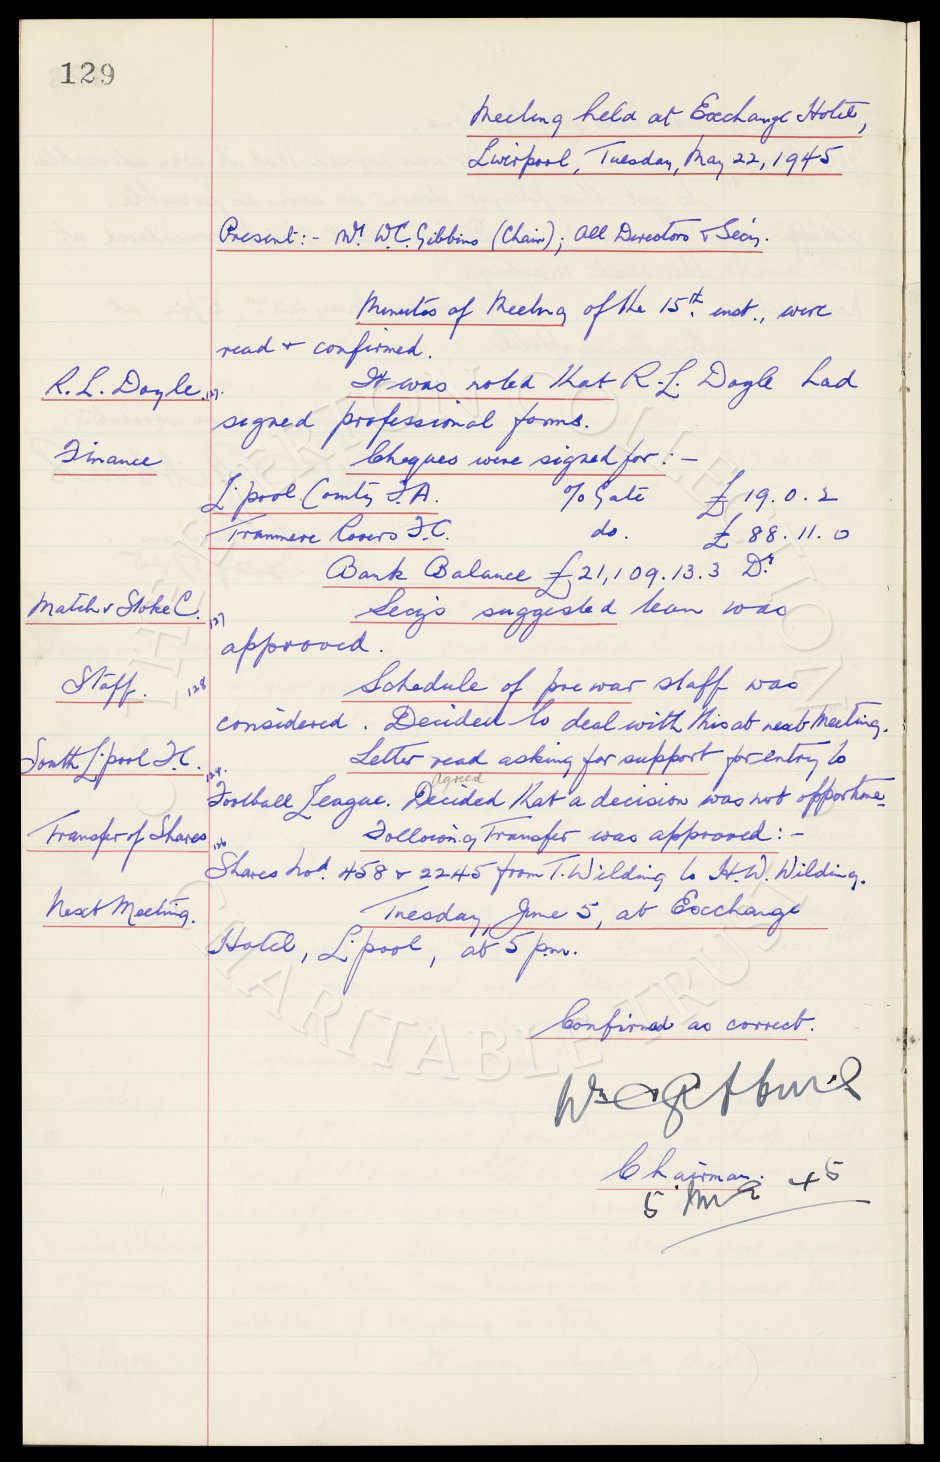 129
Meeting held at Exchange Hotel,
Liverpool, Tuesday, May 22, 1945
Present:- Mr. W.C. Gibbins (Chair); All Directors & Secy.
Minutes of Meeting of the 15th. inst., were
read & confirmed.
R. L. Doyle. 127. It was noted that R. L. Doyle had
signed professional forms.
Finance Cheques were signed for:-
L'pool County F.A. % Gate £19.0.2
Tranmere Rovers F.C. do. £88.11.0
Bank Balance £21,109.13.3 Dr
Match v Stoke C. 127 Secy's suggested team was
approved.
Staff. 128 Schedule of pre war staff was
considered. Decided to deal with this at next Meeting.
South L'pool F.C. 124. Letter read asking for support for entry to
Agreed
Football League. Decided that a decision was not opportune
Transfer of Shares 126 Following Transfer was approved:-
Shares Nod. 458 & 2245 from T. Wilding to H.W. Wilding.
Next Meeting. Tuesday, June 5, at Exchange
Hotel, L'pool, at 5 p.m.
Confirmed as correct.
Chairman.
5 45
THE EVERTON COLLECTION
CHARITABLE TRUST